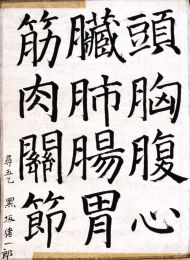 頭胸腹心
臟肺腸胃
筋肉關節
尋五乙 黒坂一郎